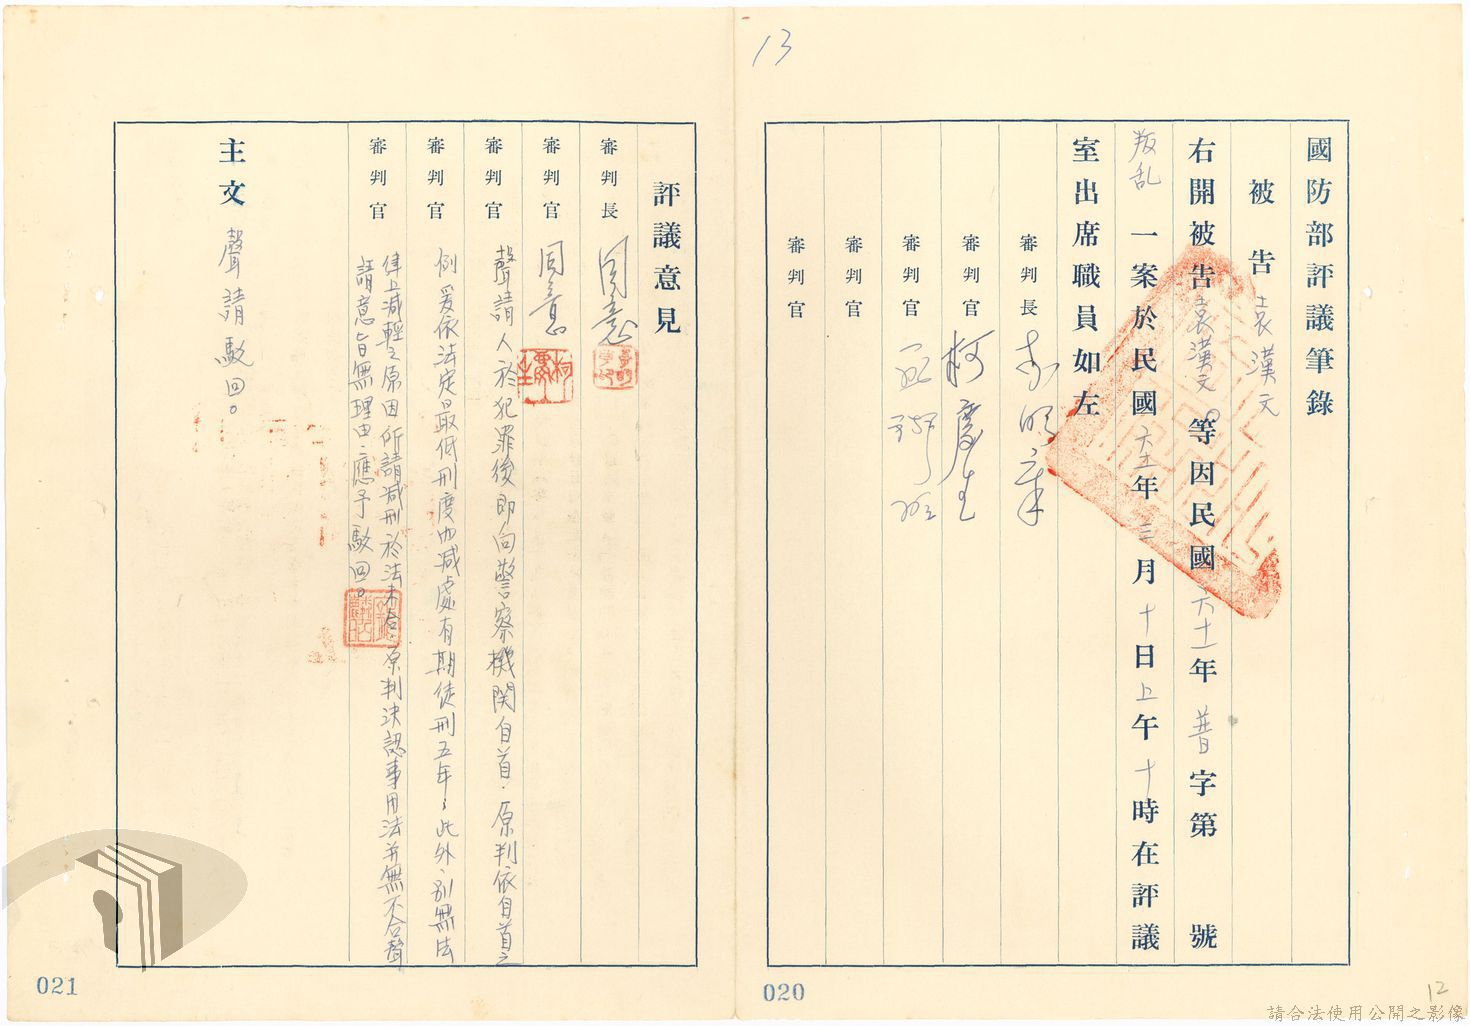 13
國防部評議筆錄
被告 袁漢文
右開被告袁漢文等因民國六十一年普字第 號
叛乱一案於民國六十一年三月十日上午十時在評議
室出席職員如左
審判長
審判官 柯慶生
審判官
審判官
審判官
12
020
評議意見
審判長 同意
審判官 同意
審判官 聲請人於犯罪後即向警察機関自首.原判依自首之
審判官 例爰依法定最低刑度內減處有期徒刑五年,此外、別無法
審判官 律上減輕之原因所請減刑於法未合.原判決認事用法并無不合聲
請意旨無理由.應予駁回。
主文 聲請駁回。
021
請合法使用公開之影像